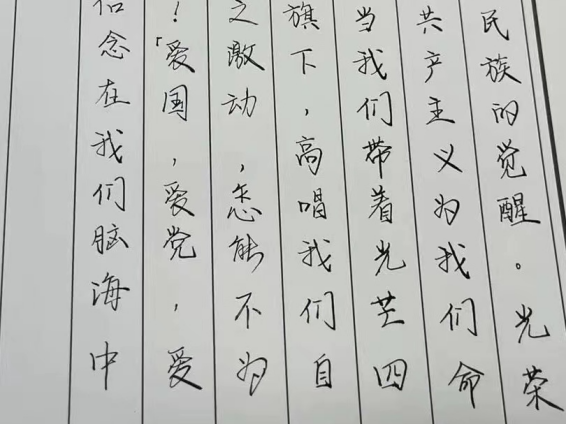 民族的觉醒。光荣
共产主义为我们命
当我们带着光芒四
旗下，高唱我们自
之激动，怎能不为
！「爱国，爱党，爱
念在我们脑海中